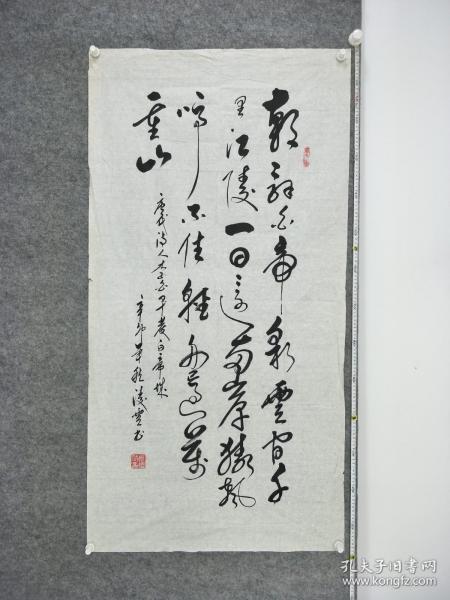 朝辞白帝彩雲间千
里江陵一日还两岸猿声
啼不住輕舟已过萬
重山
唐代诗人李白早发白帝城
辛卯年秋凌雲书
孔夫子旧书网
www.kongfz.com